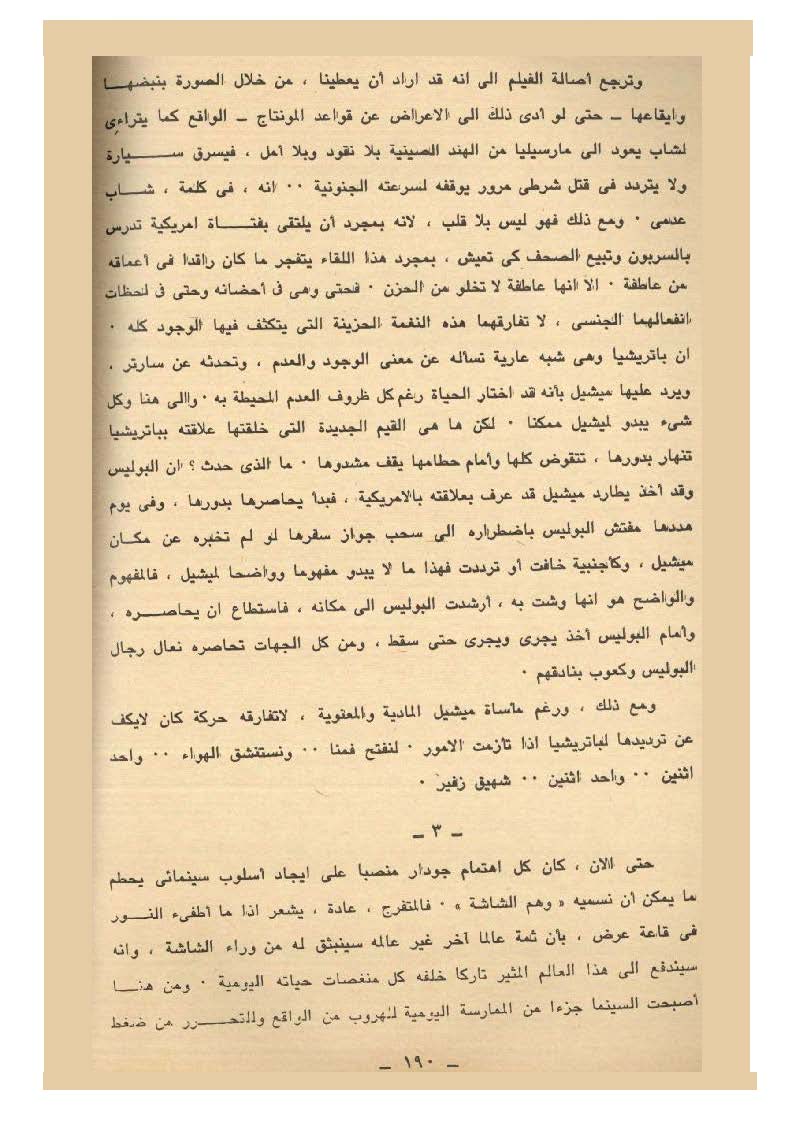 وترجع أصالة الفيلم الى انه قد اراد أن يعطينا ، من خلال الصورة بنبضهـــا
وايقاعها ــ حتى لو أدى ذلك الى الاعراض عن قواعد المونتاج ــ الواقع كما يتراءى
لشاب يعود الى مارسيليا من الهند الصينية بلا نقود وبلا أمل ، فيسرق ســـــيارة
ولا يتردد فى قتل شرطى مرور يوقفه لسرعته الجنونية ٠٠ انه ، فى كلمة ، شـــاب
عدمى ٠ ومع ذلك فهو ليس بلا قلب ، لانه بمجرد أن يلتقى بفتـــاة امريكية تدرس
بالسربون وتبيع الصحف كى تعيش ، بمجرد هذا اللقاء يتفجر ما كان راقدا فى أعماقه
من عاطفة ٠ الا انها عاطفة لا تخلو من الحزن ٠ فحتى وهى فى أحضانه وحتى فى لحظات
انفعالهما الجنسى ، لا تفارقهما هذه النغمة الحزينة التى يتكثف فيها الوجود كله ٠
ان باتريشيا وهى شبه عارية تسأله عن معنى الوجود والعدم ، وتحدثه عن سارتر ،
ويرد عليها ميشيل بأنه قد اختار الحياة رغم كل ظروف العدم المحيطة به ٠ والى هنا وكل
شىء يبدو لميشيل ممكنا ٠ لكن ها هى القيم الجديدة التى خلقتها علاقته بباتريشيا
تنهار بدورها ، تتقوض كلها وأمام حطامها يقف مشدوها ٠ ما الذى حدث ؟ ان البوليس
وقد أخذ يطارد ميشيل قد عرف بعلاقته بالامريكية ، فبدأ يحاصرها بدورها ، وفى يوم
هددها مفتش البوليس باضطراره الى سحب جواز سفرها لو لم تخبره عن مكـــان
ميشيل ، وكأجنبية خافت أو ترددت فهذا ما لا يبدو مفهوما وواضحا لميشيل ، فالمفهوم
والواضح هو انها وشت به ، أرشدت البوليس الى مكانه ، فاستطاع ان يحاصـــره ،
وأمام البوليس أخذ يجرى ويجرى حتى سقط ، ومن كل الجهات تحاصره نعال رجال
البوليس وكعوب بنادقهم ٠
ومع ذلك ، ورغم مأساة ميشيل المادية والمعنوية ، لاتفارقه حركة كان لايكف
عن ترديدها لباتريشيا اذا تأزمت الامور ٠ لنفتح فمنا ٠٠ ونستنشق الهواء ٠٠ واحد
اثنين ٠٠ واحد اثنين ٠٠ شهيق زفير ٠
ــ ٣ ــ
حتى الان ، كان كل اهتمام جودار منصبا على ايجاد أسلوب سينمائى يحطم
ما يمكن أن نسميه « وهم الشاشة » ٠ فالمتفرج ، عادة ، يشعر اذا ما أطفىء النـــور
فى قاعة عرض ، بأن ثمة عالما آخر غير عالمه سينبثق له من وراء الشاشة ، وانه
سيندفع الى هذا العالم المثير تاركا خلفه كل منغصات حياته اليومية ٠ ومن هنـــا
أصبحت السينما جزءا من الممارسة اليومية للهروب من الواقع وللتحـــرر من ضغط
ــ ١٩٠ ــ